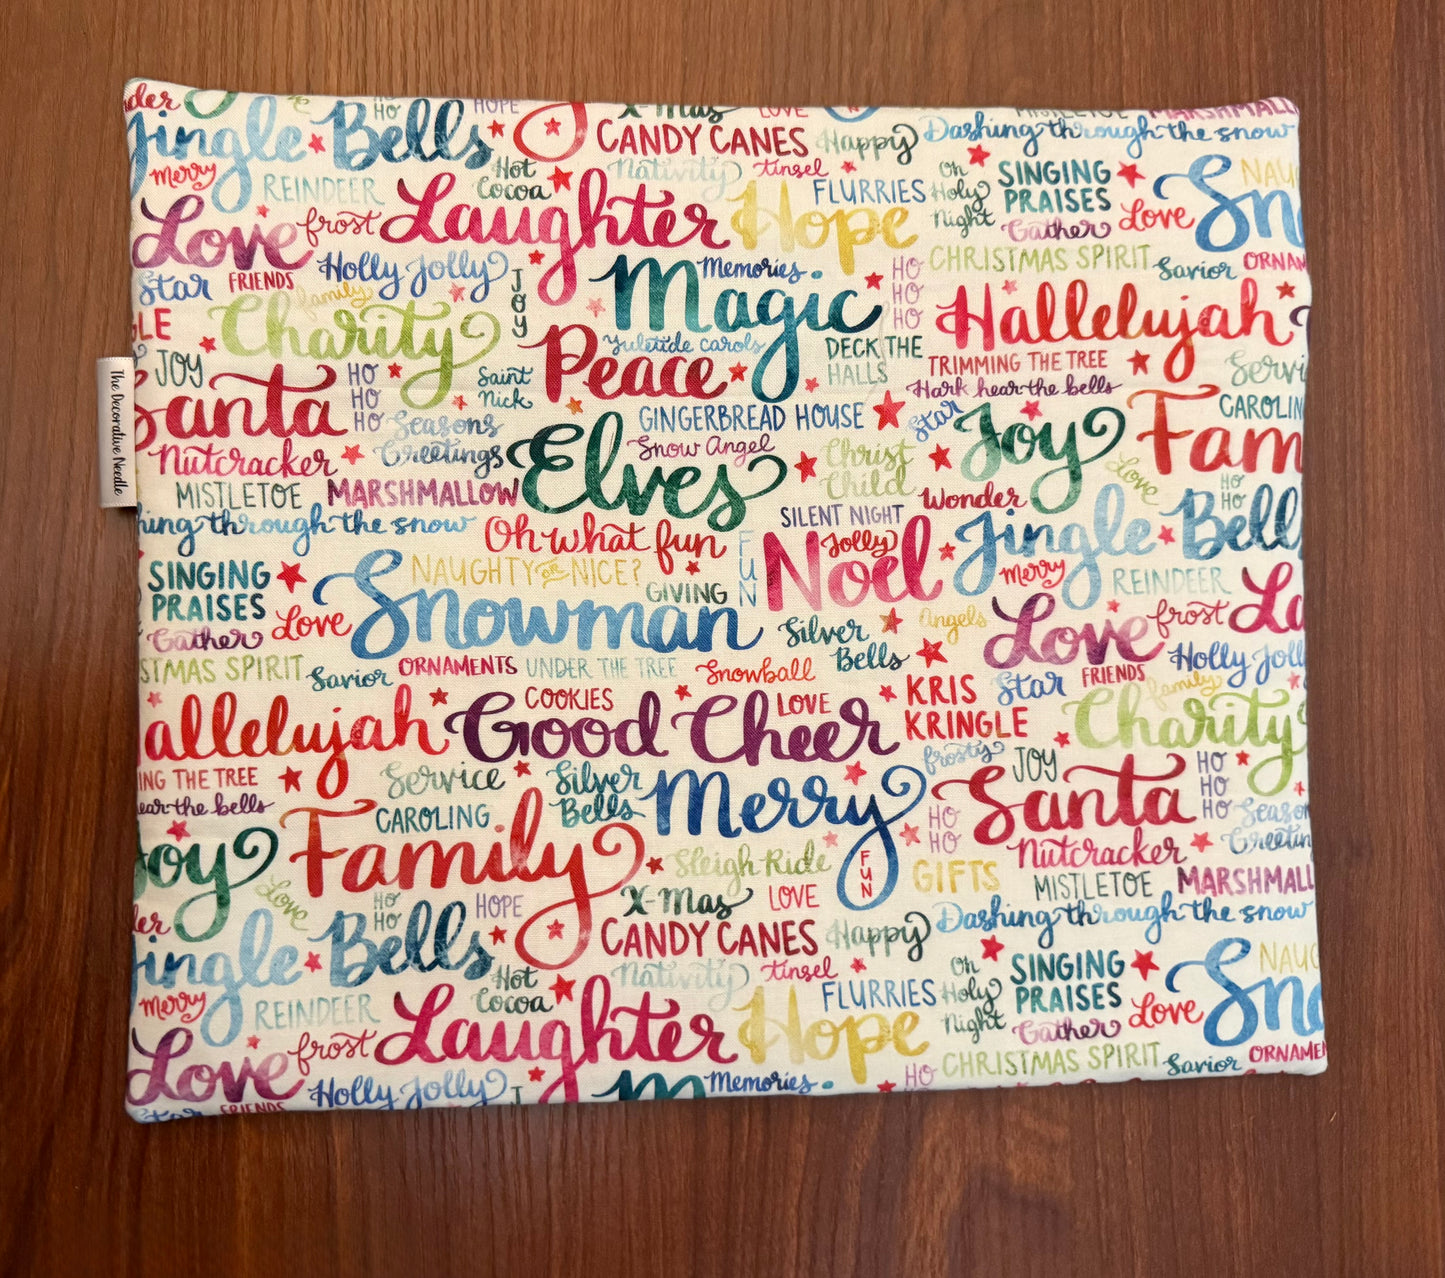 Jingle Bells HO HO HOPE X-Mas LOVE FUN MISTLETOE MARSHMALL
CANDY CANES Happy Dashing through the snow
Merry REINDEER Hot Cocoa Nativity tinsel FLURRIES Oh Holy Night SINGING PRAISES NAUG
Love frost Laughter Hope Gather Love Sn
Star FRIENDS Holly Jolly JOY Memories HO HO HO CHRISTMAS SPIRIT Savior ORNAM
family Charity Magic Hallelujah
GLE JOY Peace Yuletide carols DECK THE HALLS TRIMMING THE TREE Servi
Santa HO HO HO Saint Nick Hark hear the bells CAROLIN
Seasons Greetings Elves GINGERBREAD HOUSE Star Joy Fam
Nutcracker Snow Angel Christ Child Love
MISTLETOE MARSHMALLOW Wonder HO HO
The Decorative Needle
hing through the snow Oh what fun FUN SILENT NIGHT Jolly Noel Jingle Bell
SINGING PRAISES NAUGHTY OR NICE? GIVING Merry REINDEER
Gather Love Snowman Silver Bells Angels Love frost La
STMAS SPIRIT Savior ORNAMENTS UNDER THE TREE Snowball FRIENDS Holly Jolly
allelujah COOKIES Good Cheer LOVE KRIS KRINGLE Star family Charity
ING THE TREE Service Silver Bells Merry frosty JOY HO HO HO
ear the bells CAROLING HO HO Santa Season Greetin
Joy Family Sleigh Ride FUN GIFTS Nutcracker
Love HO HO HOPE X-Mas LOVE MISTLETOE MARSHMALL
Jingle Bells CANDY CANES Happy Dashing through the snow
Merry REINDEER Hot Cocoa Nativity tinsel FLURRIES Oh Holy Night SINGING PRAISES NAUG
Love frost Laughter Hope Gather Love Sn
Holly Jolly Memories HO CHRISTMAS SPIRIT Savior ORNAMEN
Star FRIENDS